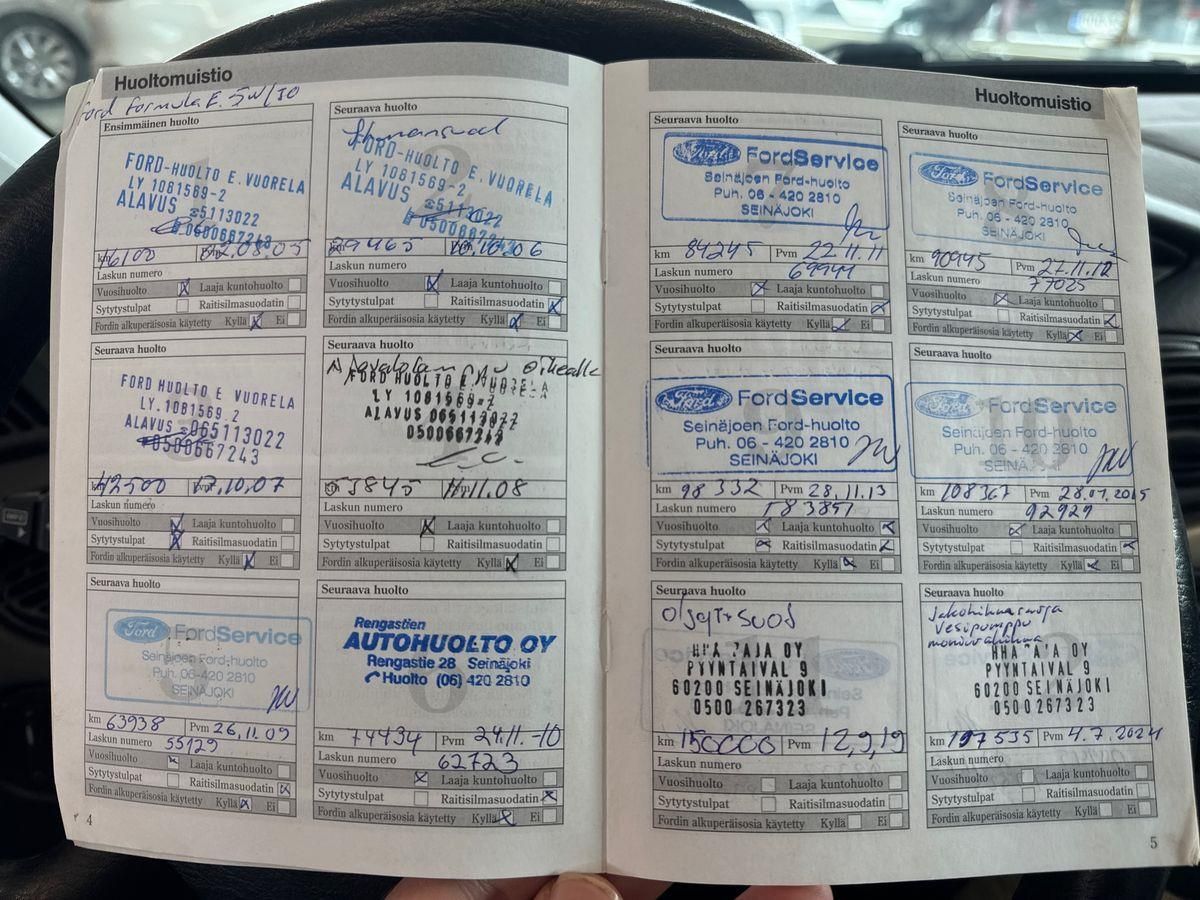 Huoltomuistio
Ford Formula E. 5W/30
Ensimmäinen huolto
FORD-HUOLTO E. VUORELA
LY 1081569-2
ALAVUS ☎5113022
0500667243
km 16100 Pvm 02.08.05
Laskun numero
Vuosihuolto X Laaja kuntohuolto
Sytytystulpat Raitisilmasuodatin
Fordin alkuperäisosia käytetty Kyllä X Ei
Seuraava huolto
FORD-HUOLTO E. VUORELA
LY 1081569-2
ALAVUS ☎5113022
0500667243
km 29465 Pvm 10.10.06
Laskun numero
Vuosihuolto X Laaja kuntohuolto
Sytytystulpat Raitisilmasuodatin X
Fordin alkuperäisosia käytetty Kyllä X Ei
Seuraava huolto
FORD HUOLTO E VUORELA
LY.1081569.2
ALAVUS ☎065113022
0500667243
km 42500 Pvm 17.10.07
Laskun numero
Vuosihuolto X Laaja kuntohuolto
Sytytystulpat X Raitisilmasuodatin
Fordin alkuperäisosia käytetty Kyllä X Ei
Seuraava huolto
FORD HUOLTO E VUORELA
LY 1081569-2
ALAVUS 065113022
0500667243
km 53845 Pvm 11.11.08
Laskun numero
Vuosihuolto X Laaja kuntohuolto
Sytytystulpat Raitisilmasuodatin
Fordin alkuperäisosia käytetty Kyllä X Ei
Seuraava huolto
Ford FordService
Seinäjoen Ford-huolto
Puh. 06-420 2810
SEINÄJOKI
km 63938 Pvm 26.11.09
Laskun numero 55129
Vuosihuolto X Laaja kuntohuolto
Sytytystulpat Raitisilmasuodatin X
Fordin alkuperäisosia käytetty Kyllä X Ei
Seuraava huolto
Rengastien
AUTOHUOLTO OY
Rengastie 28 Seinäjoki
Huolto (06) 420 2810
km 74434 Pvm 24.11.-10
Laskun numero 62723
Vuosihuolto X Laaja kuntohuolto
Sytytystulpat Raitisilmasuodatin X
Fordin alkuperäisosia käytetty Kyllä X Ei
4
Huoltomuistio
Seuraava huolto
Ford FordService
Seinäjoen Ford-huolto
Puh. 06 - 420 2810
SEINÄJOKI
km 84245 Pvm 22.11.11
Laskun numero 69941
Vuosihuolto X Laaja kuntohuolto
Sytytystulpat Raitisilmasuodatin X
Fordin alkuperäisosia käytetty Kyllä X Ei
Seuraava huolto
Ford FordService
Seinäjoen Ford-huolto
Puh. 06 - 420 2810
SEINÄJOKI
km 90945 Pvm 27.11.12
Laskun numero 77025
Vuosihuolto X Laaja kuntohuolto
Sytytystulpat Raitisilmasuodatin X
Fordin alkuperäisosia käytetty Kyllä X Ei
Seuraava huolto
Ford FordService
Seinäjoen Ford-huolto
Puh. 06 - 420 2810
SEINÄJOKI
km 98332 Pvm 28.11.13
Laskun numero
Vuosihuolto X Laaja kuntohuolto X
Sytytystulpat X Raitisilmasuodatin X
Fordin alkuperäisosia käytetty Kyllä X Ei
Seuraava huolto
Ford FordService
Seinäjoen Ford-huolto
Puh. 06 - 420 2810
SEINÄJOKI
km 108367 Pvm 28.01.2015
Laskun numero 92929
Vuosihuolto X Laaja kuntohuolto
Sytytystulpat Raitisilmasuodatin X
Fordin alkuperäisosia käytetty Kyllä X Ei
Seuraava huolto
Öljyt+suod
HHA PAJA OY
PYYNTAIVAL 9
60200 SEINÄJOKI
0500 267323
km 150000 Pvm 12,9,19
Laskun numero
Vuosihuolto Laaja kuntohuolto
Sytytystulpat Raitisilmasuodatin
Fordin alkuperäisosia käytetty Kyllä Ei
Seuraava huolto
jakohihnasarja
Vesipumppu
monourahihna
HHA PAJA OY
PYYNTAIVAL 9
60200 SEINÄJOKI
0500 267323
km 197535 Pvm 4.7.2024
Laskun numero
Vuosihuolto Laaja kuntohuolto
Sytytystulpat Raitisilmasuodatin
Fordin alkuperäisosia käytetty Kyllä Ei
5